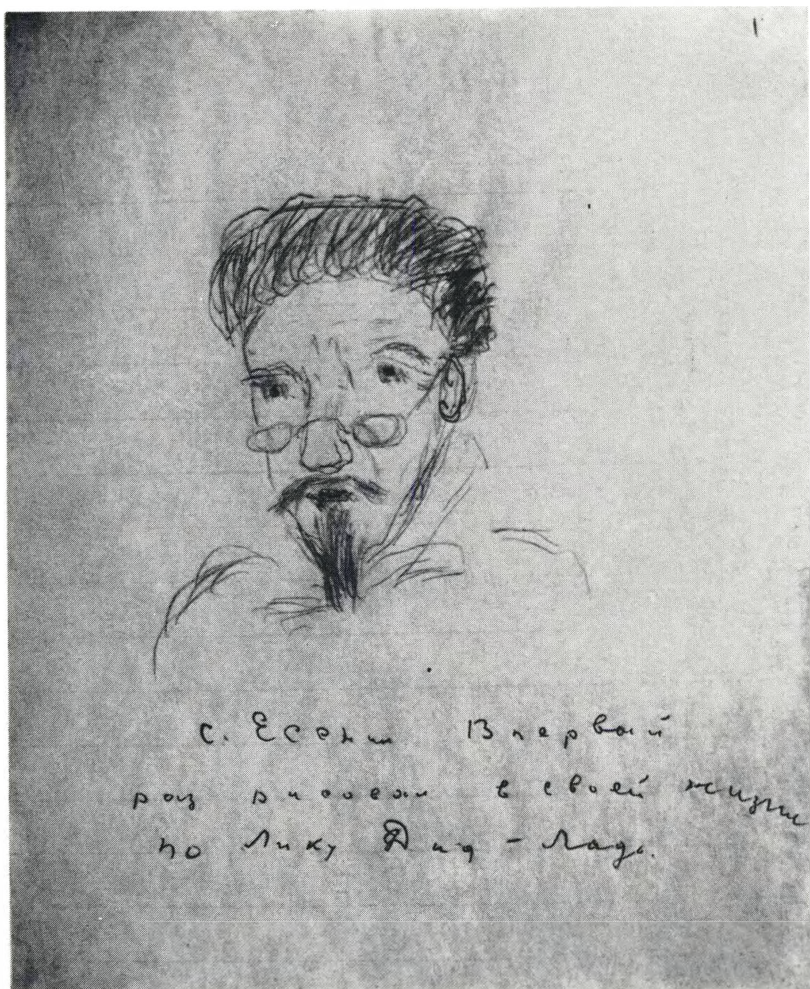 С. Есенин Впервый
раз рисовал в своей жизни
по Лику Дид-Ладо.